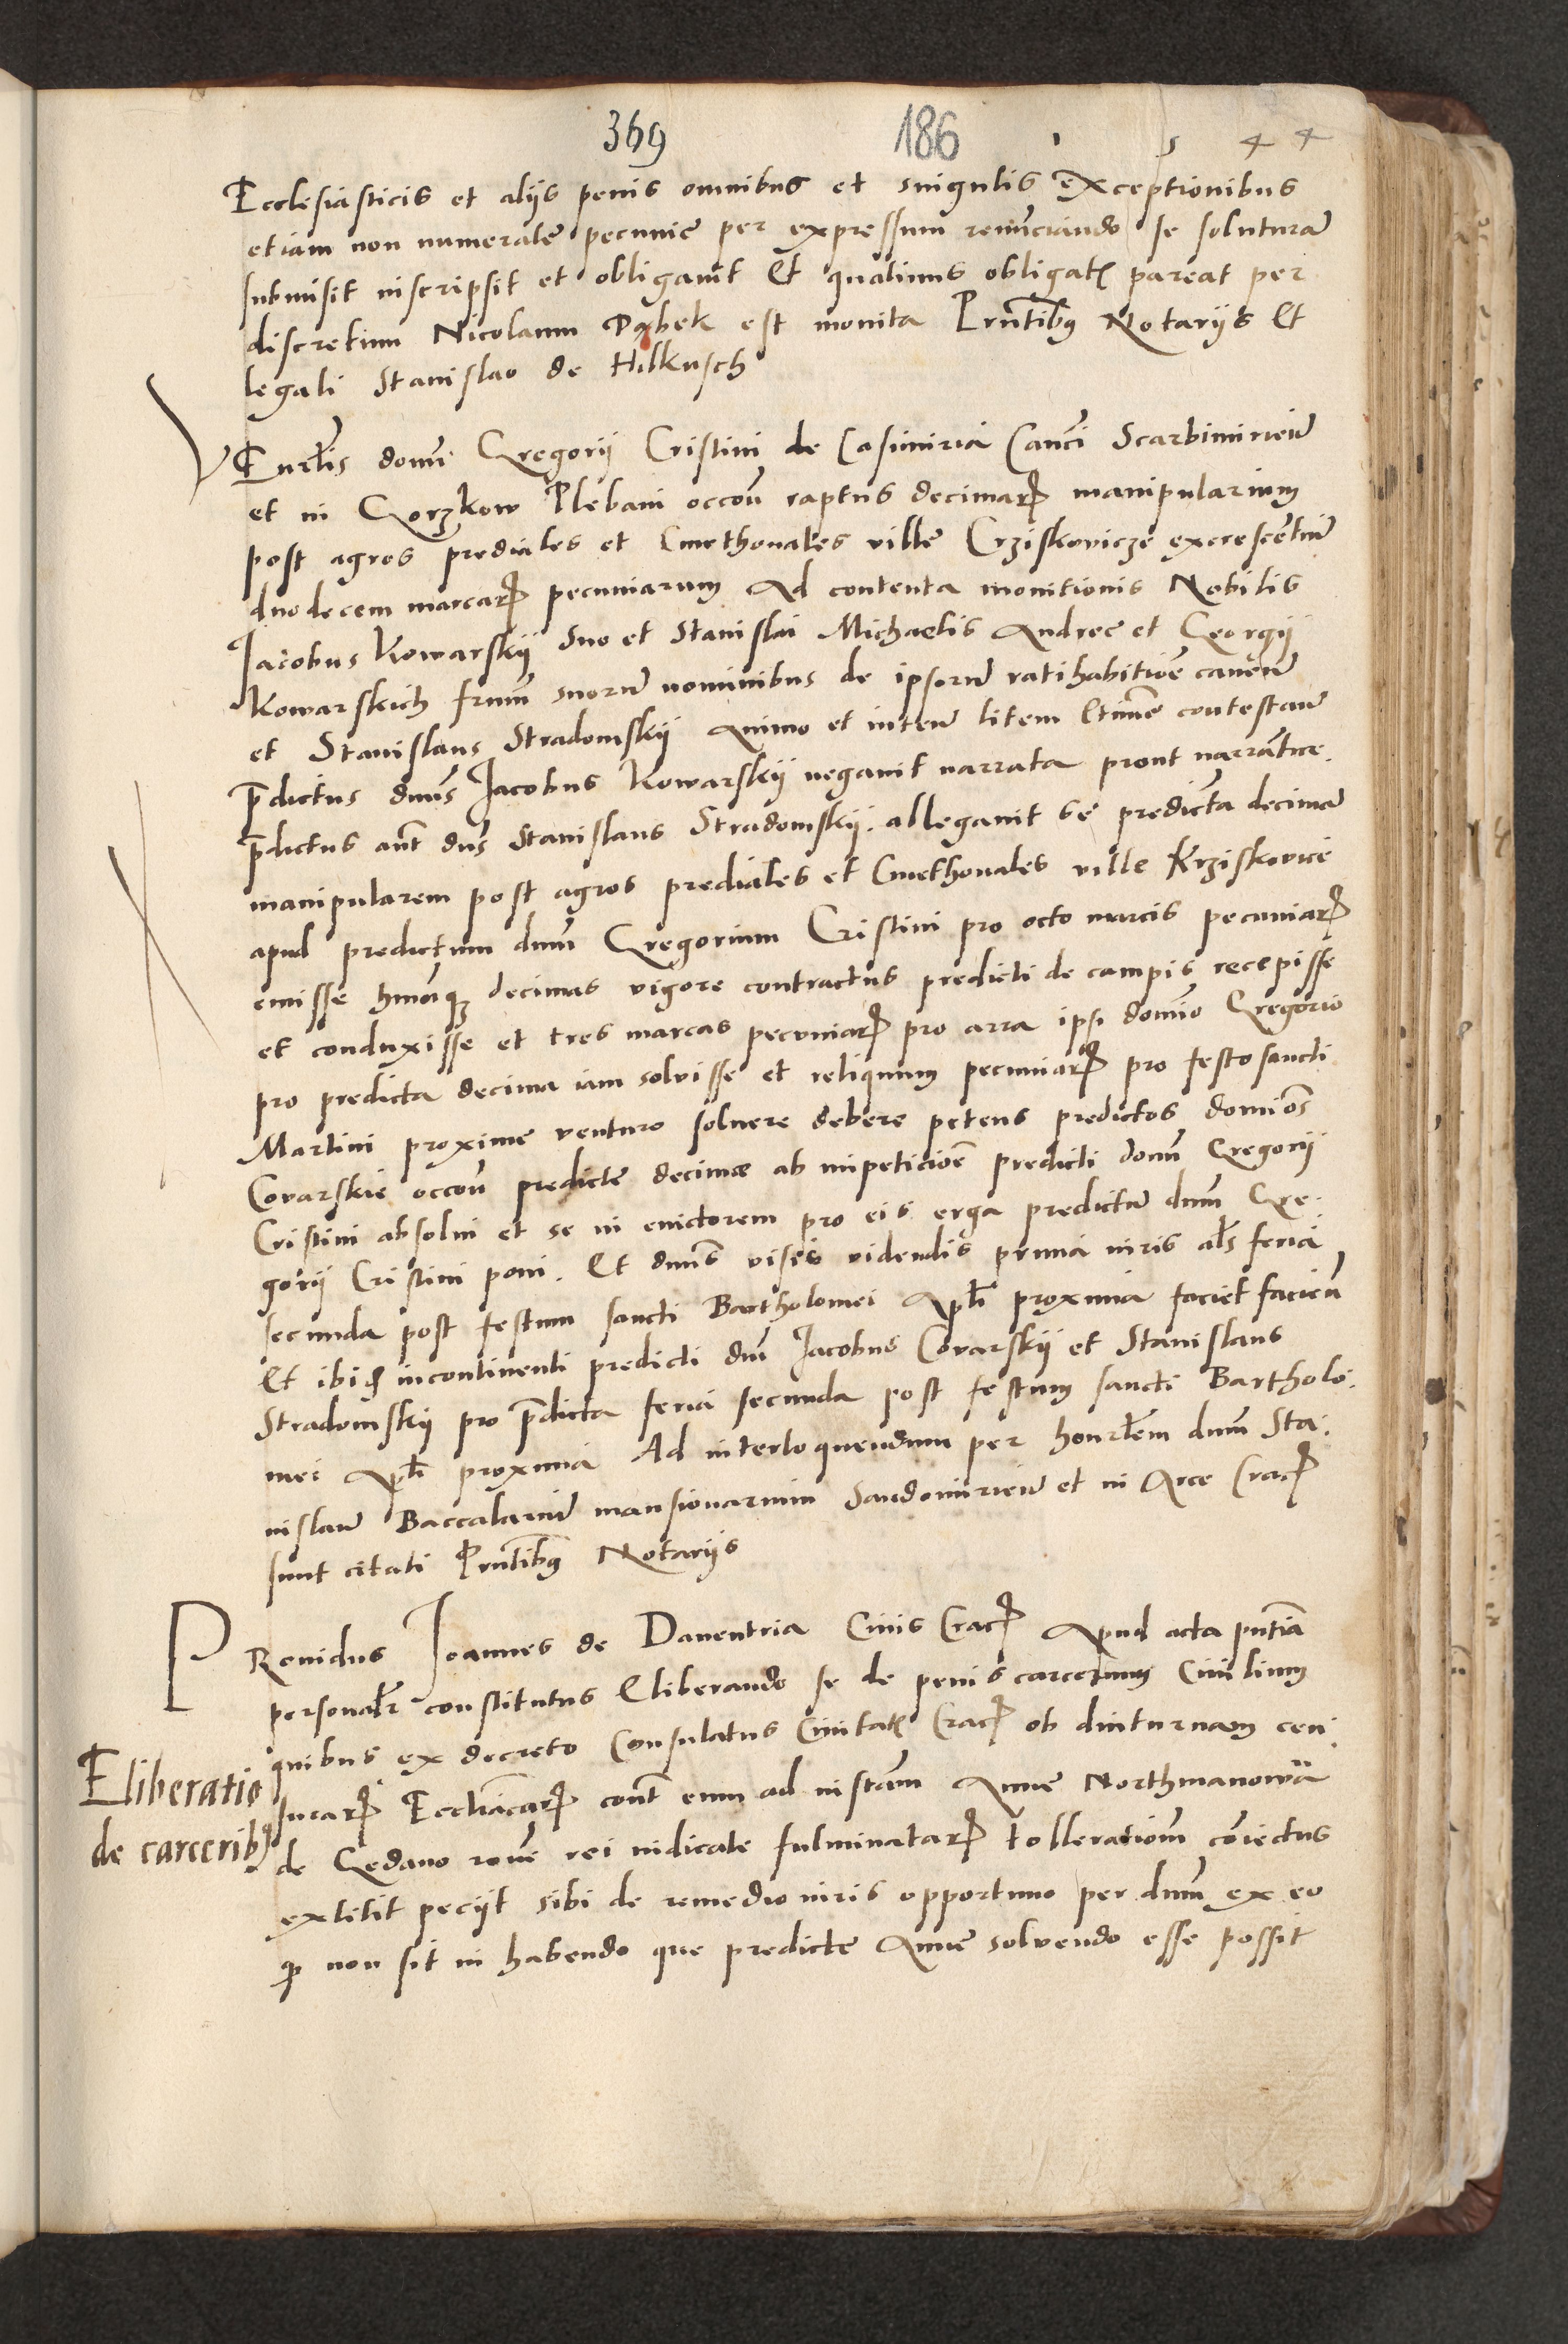 369 186
Ecclesiasticis et alijs penis omnibus et singulis exceptionibus
etiam non numerate pecunie per expressum renunciando se soluturam
submisit inscripsit et obligavit Et quatinus obligatẽ pareat per
discretum Nicolaum Dąbek est monita Prñtibꝰ Notarijs Et
legali Stanislao de Hilkusch
Venẽlis domñ Gregorij Cristini de Casimiria Canci Scarbimirieñ
et in Gorzkow Plebani occoñ raptus decimarꝝ manipularium
post agros prediales et Cmethonales ville Crziskovicze excrescentiũ
duodecem marcarꝝ pecuniarum Ad contenta monitionis Nobilis
Jacobus Kowarskij Suo et Stanislai Michaelis Andree et Georgij
Kowarskich frum̃ suorum nominibus de ipsorum ratihabitioẽ caveñ
et Stanislaus Stradomskij Animo et inteñ litem ltimẽ contestañ
p̃dictus dnus Jacobus Kowarskij negavit narrata prout narrãtur.
p̃dictus aũt dñs Stanislaus Stradomskij. allegavit se predictã decimã
manipularem post agros prediales et Cmethonales ville Krziskovice
apud predictum dnum̃ Gregorium Cristini pro octo marcis pecuniarꝝ
emisse hm̃oiqꝫ decimas vigore contractus predicti de campis recepisse
et conduxisse et tres marcas pecuniarꝝ pro arra ipsi domĩo Gregorio
pro predicta decima iam solvisse et reliquum pecuniarꝝ pro festo sancti
Martini proxime venturo soluere debere petens predictos domĩos
Covarskie occoñ predicte decimae ab impeticioẽ predicti domñ Gregorij
Cristini absolui et se in evictorem pro eis erga predictũ dnum̃ Gre-
gorij Cristini poni. Et dnus̃ visis videndis prima iuris als̃ feria
secunda post festum sancti Bartholomei Apłi proxima faciet facieñ
Et ibidẽ incontinenti predicti dni Jacobus Covarskij et Stanislaus
Stradomskij pro p̃dicta feria secunda post festum sancti Bartholo-
mei Apłi proxima Ad interloquendum per honorłem dnum̃ Sta-
nislaum Baccalarium mansionarium Sandomirieñ et in Arce Cracꝝ
sunt citati Prñtibꝰ Notarijs
Providus Joannes de Daventria Civis Cracꝝ Apud acta pñtia
personałr constitutus Eliberando se de penis carcerum Civilium
quibus ex decreto Consulatus Civitatẽ Cracꝝ ob diuturnam cen-
surarꝝ Ecclãicarꝝ cont̃ eum ad instam̃ Anne Northmanowa
de Gedano roñe rei iudicate fulminatarꝝ tollerationẽ coñiectus
extitit peciit sibi de remedio iuris opportuno per dnum̃ ex eo
ꝙ non sit in habendo que predicte Anne solvendo esse possit
Eliberatio
de carceribꝰ